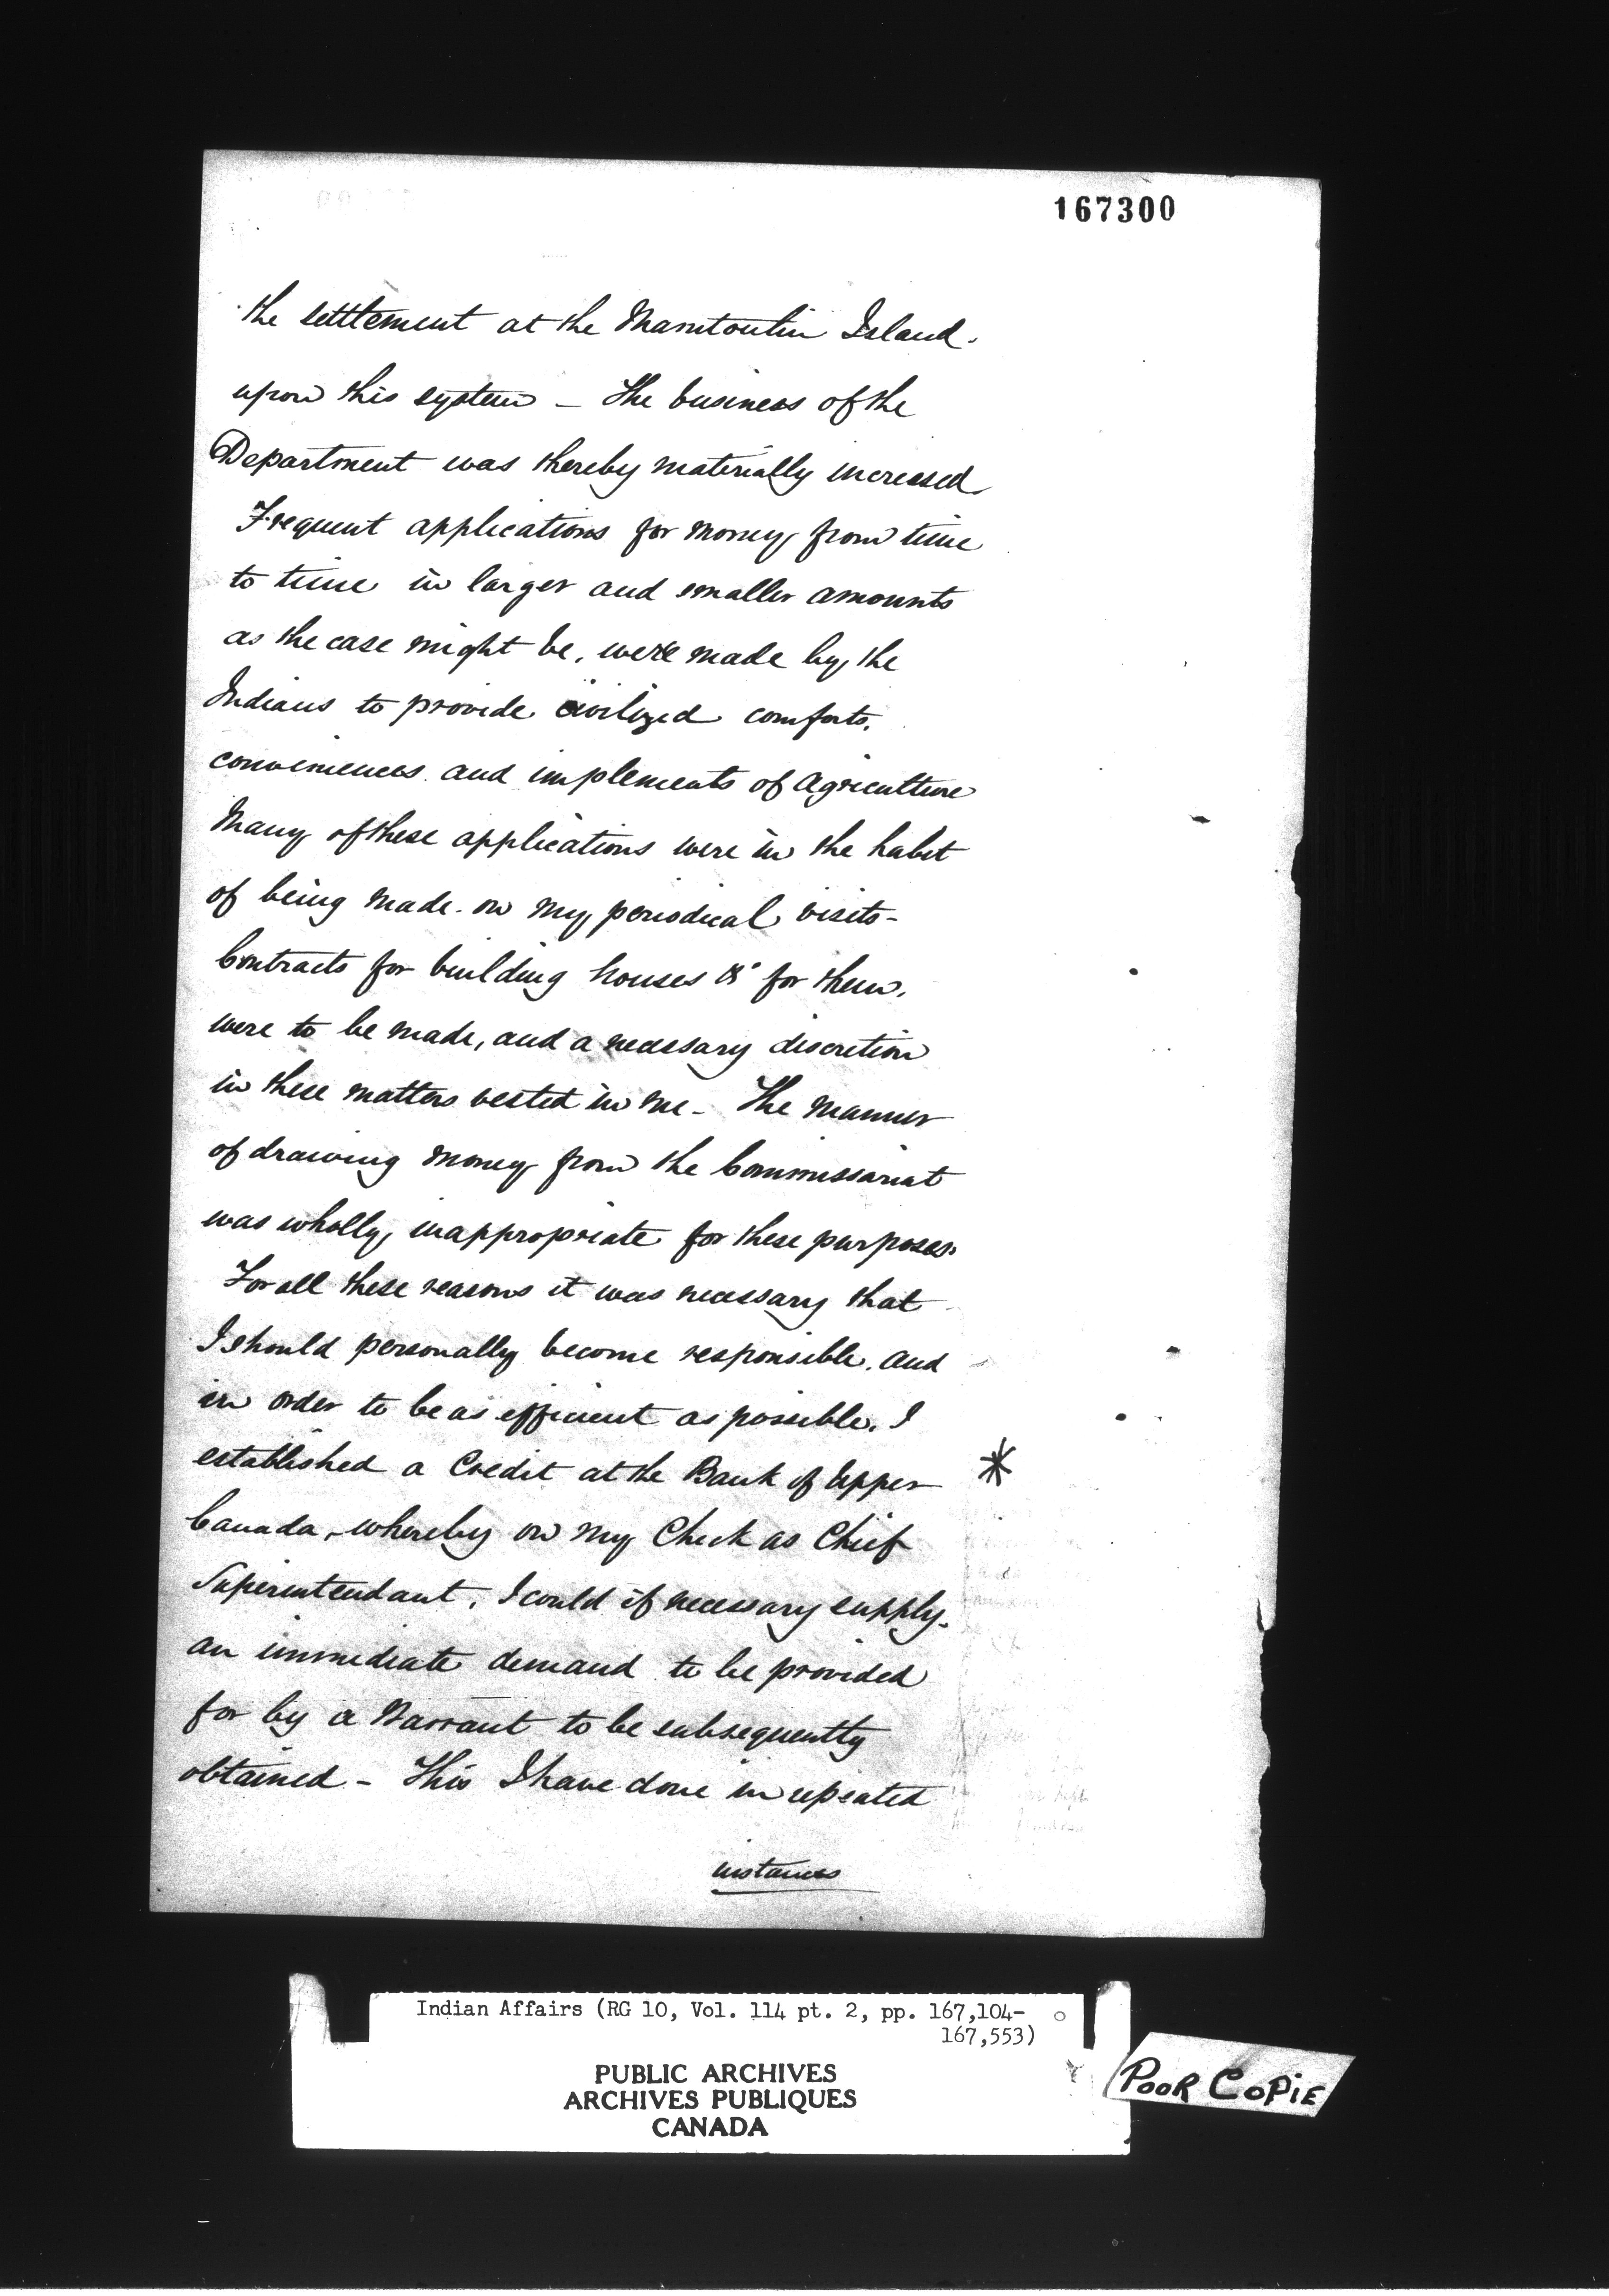 167300
the settlement at the Manitoulin Island.
upon this system – The business of the
Department was thereby materially increased
Frequent applications for money from time
to time in larger and smaller amounts
as the case might be, were made by the
Indians to provide civilized comforts,
conveniences and implements of agriculture
Many of these applications were in the habit
of being made on my periodical visits –
Contracts for building houses &c for them,
were to be made, and a necessary discretion
in these matters vested in me – The manner
of drawing money from the Commissariat
was wholly inappropriate for these purposes.
For all these reasons it was necessary that
I should personally become responsible, and
in order to be as efficient as possible, I
established a Credit at the Bank of Upper *
Canada, whereby on my Check as Chief
Superintendant, I could if necessary supply
an immediate demand to be provided
for by a Warrant to be subsequently
obtained – This I have done in repeated
instances
Indian Affairs (RG 10, Vol. 114 pt. 2, pp. 167,104-
167,553)
PUBLIC ARCHIVES
ARCHIVES PUBLIQUES
CANADA
POOR COPIE